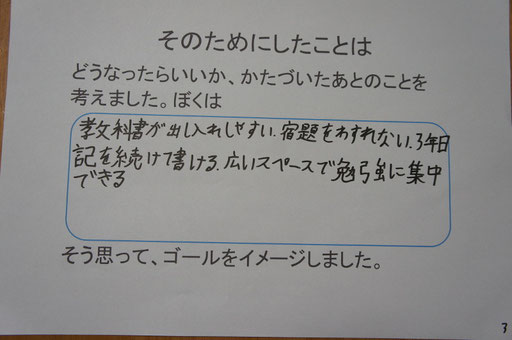 そのためにしたことは
どうなったらいいか、かたづいたあとのことを
考えました。ぼくは
教科書が出し入れしやすい.宿題をわすれない.3年日
記を続けて書ける.広いスペースで勉強に集中
できる
そう思って、ゴールをイメージしました。
3